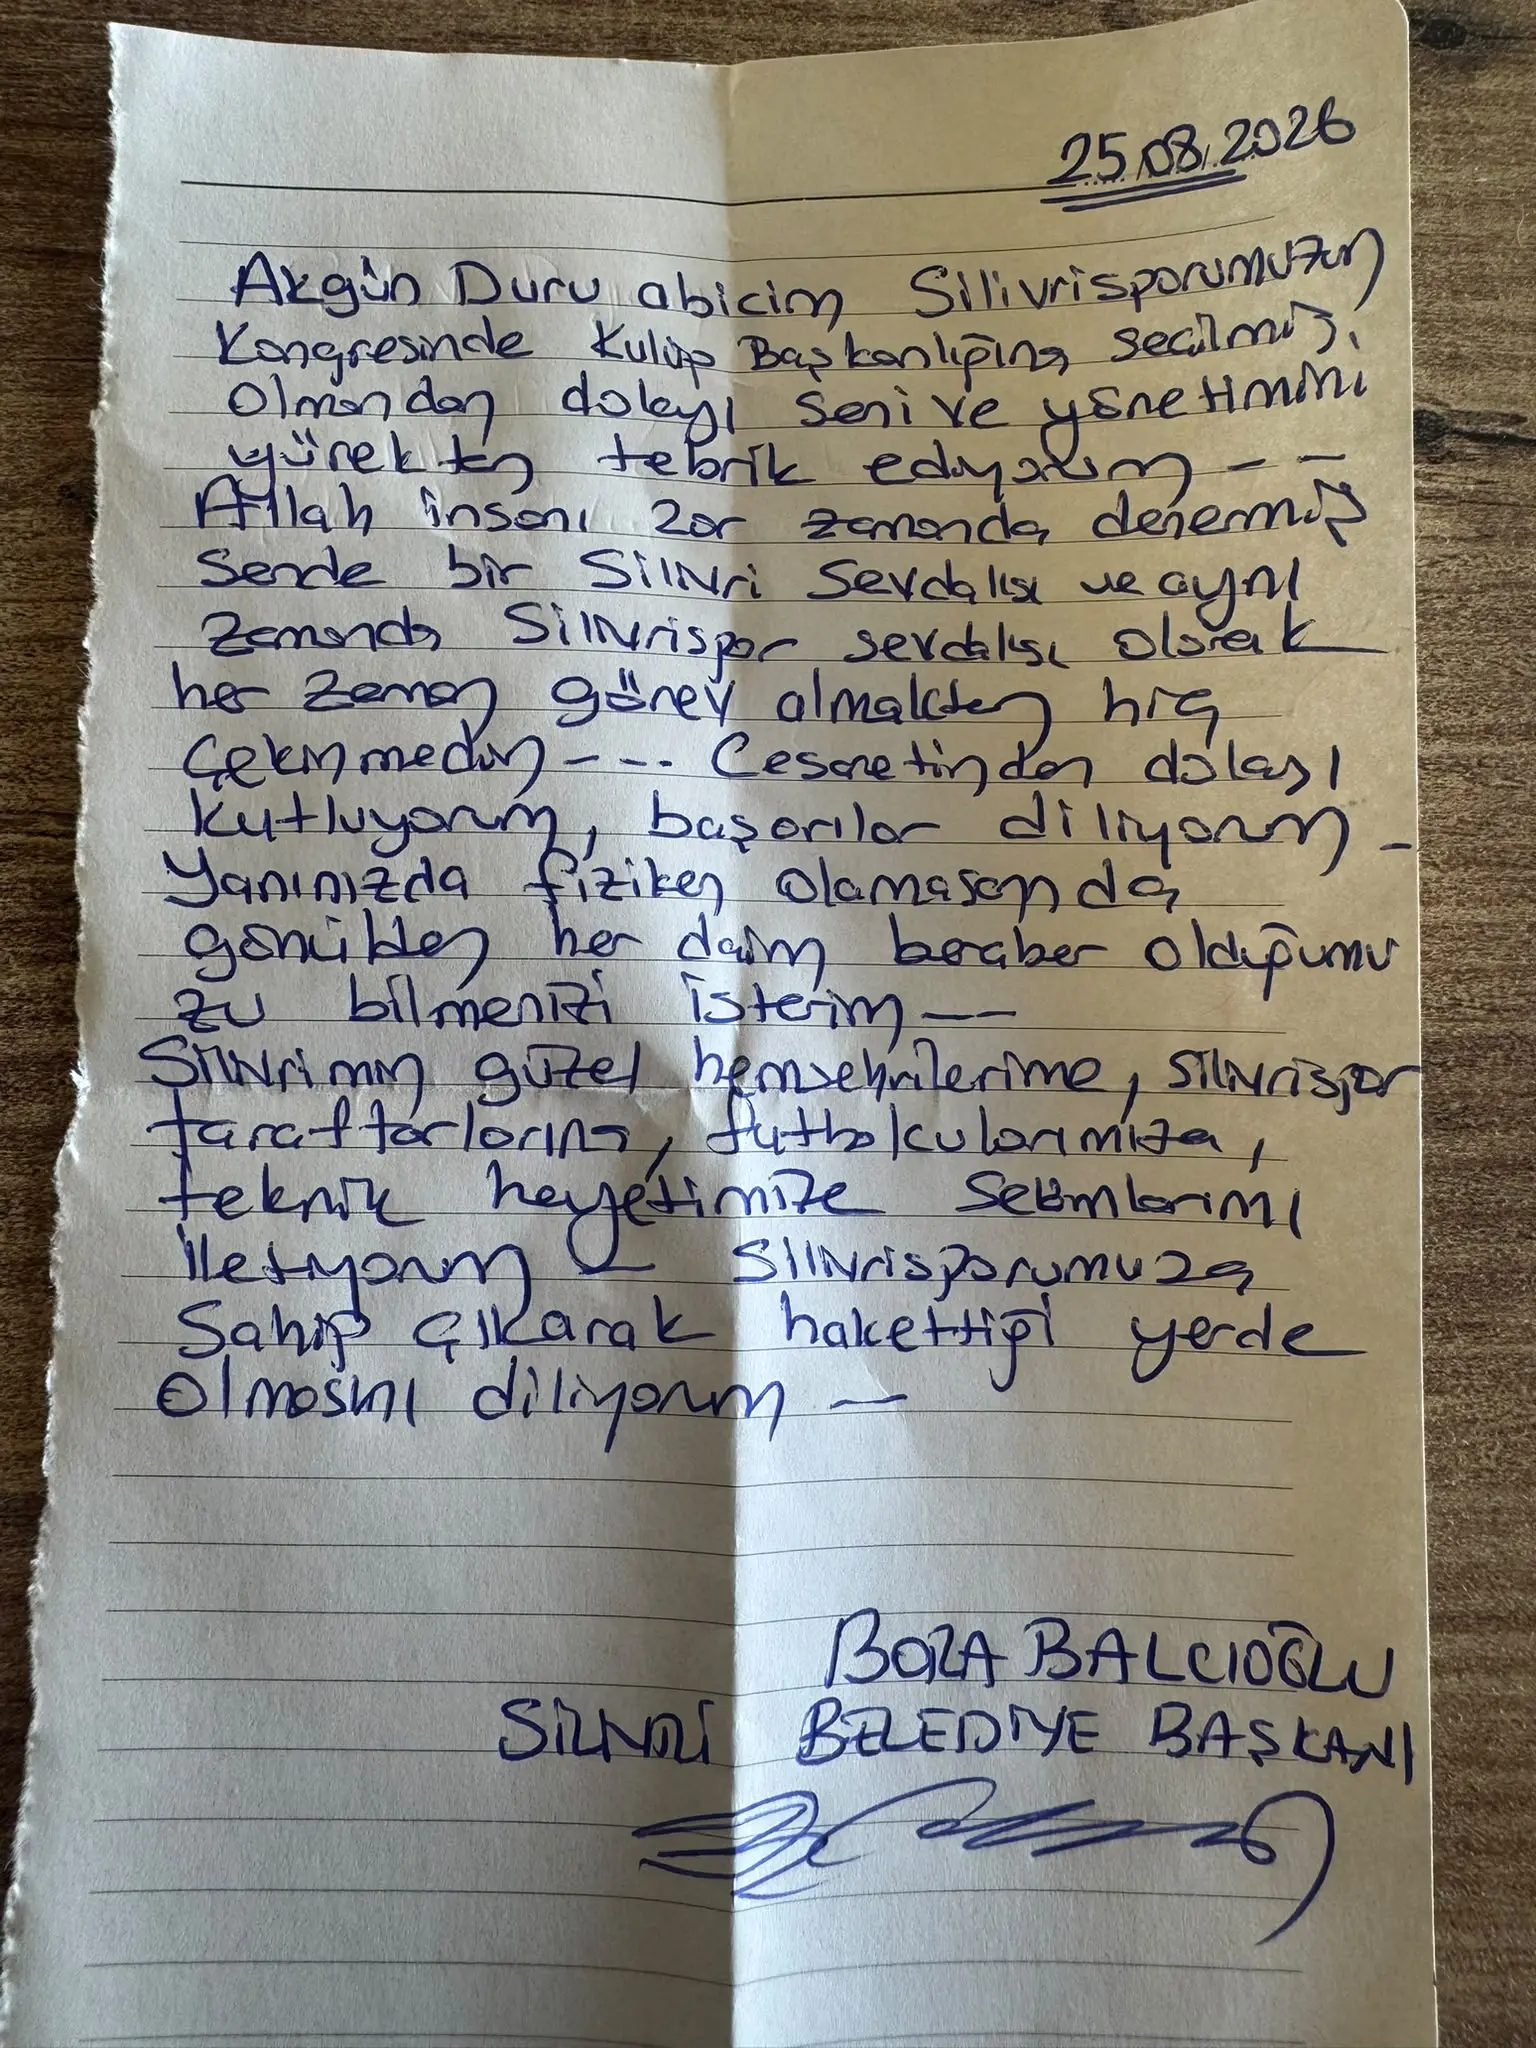 25.08.2026
Akgün Duru abicim Silivrisporumuzun
Kongresinde Kulüp Başkanlığına seçilmiş
Olmandan dolayı seni ve yönetimini
yürekten tebrik ediyorum - -
Allah insanı zor zamanda denermiş
Sende bir Silivri Sevdalısı ve aynı
zamanda Silivrispor sevdalısı olarak
her zaman görev almaktan hiç
Çekinmedin - - - Cesaretinden dolayı
kutluyorum, başarılar diliyorum -
Yanınızda fiziken olamasamda
gönülden her daim beraber olduğumu
zu bilmenizi isterim - -
Silivrimin güzel hemşehrilerime, Silivrispor
taraftarlarına, futbolcularımıza,
teknik heyetimize selamlarımı
iletiyorum - Silivrisporumuza
Sahip çıkarak hakettiği yerde
Olmasını diliyorum -
BORA BALCIOĞLU
SİLİVRİ BELEDİYE BAŞKANI